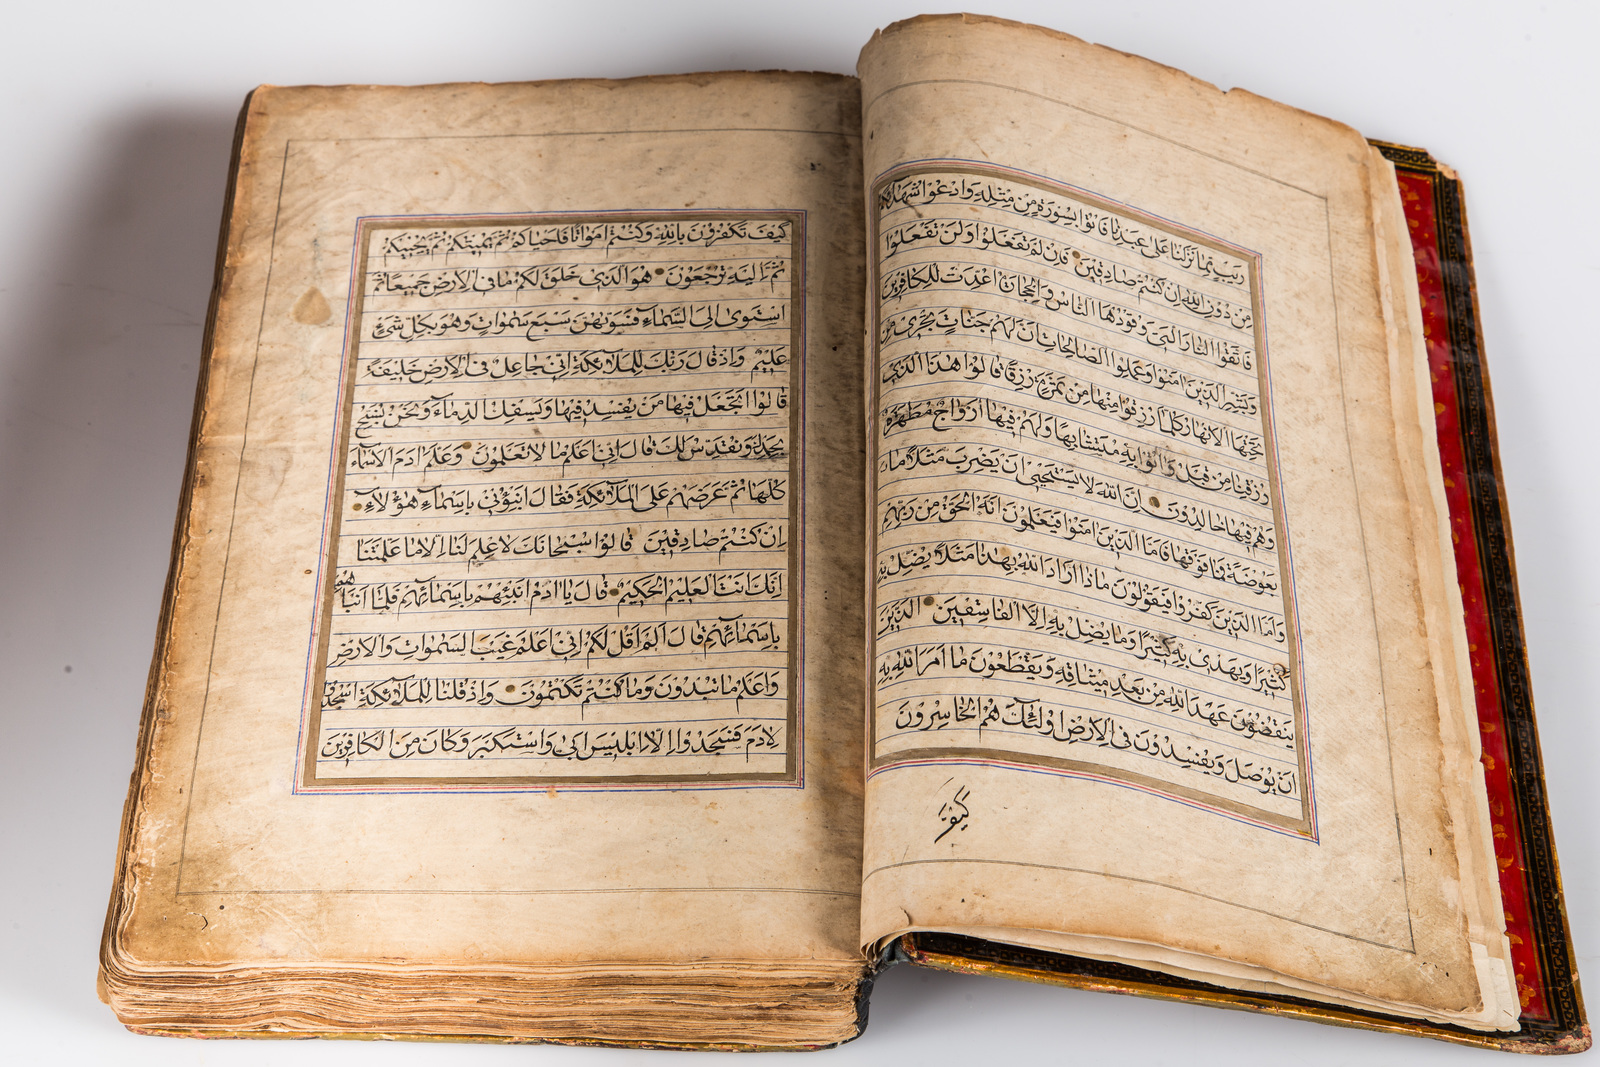 رَيْبٍ مِمَّا نَزَّلْنَا عَلَى عَبْدِنَا فَاتُوا بِسُورَةٍ مِنْ مِثْلِهِ وَادْعُوا شُهَدَاءَكُمْ
مِنْ دُونِ اللهِ اِنْ كُنْتُمْ صَادِقِينَ فَاِنْ لَمْ تَفْعَلُوا وَلَنْ تَفْعَلُوا
فَاتَّقُوا النَّارَ الَّتِى وَقُودُهَا النَّاسُ وَالْحِجَارَةُ اُعِدَّتْ لِلْكَافِرِينَ
وَبَشِّرِ الَّذِينَ اٰمَنُوا وَعَمِلُوا الصَّالِحَاتِ اَنَّ لَهُمْ جَنَّاتٍ تَجْرِى مِنْ
تَحْتِهَا الْاَنْهَارُ كُلَّمَا رُزِقُوا مِنْهَا مِنْ ثَمَرَةٍ رِزْقًا قَالُوا هٰذَا الَّذِى
رُزِقْنَا مِنْ قَبْلُ وَاُتُوا بِهِ مُتَشَابِهًا وَلَهُمْ فِيهَا اَزْوَاجٌ مُطَهَّرَةٌ
وَهُمْ فِيهَا خَالِدُونَ اِنَّ اللهَ لَا يَسْتَحْيِى اَنْ يَضْرِبَ مَثَلًا مَا
بَعُوضَةً فَمَا فَوْقَهَا فَاَمَّا الَّذِينَ اٰمَنُوا فَيَعْلَمُونَ اَنَّهُ الْحَقُّ مِنْ رَبِّهِمْ
وَاَمَّا الَّذِينَ كَفَرُوا فَيَقُولُونَ مَاذَا اَرَادَ اللهُ بِهٰذَا مَثَلًا يُضِلُّ بِهِ
كَثِيرًا وَيَهْدِى بِهِ كَثِيرًا وَمَا يُضِلُّ بِهِ اِلَّا الْفَاسِقِينَ الَّذِينَ
يَنْقُضُونَ عَهْدَ اللهِ مِنْ بَعْدِ مِيثَاقِهِ وَيَقْطَعُونَ مَا اَمَرَ اللهُ بِهِ
اَنْ يُوصَلَ وَيُفْسِدُونَ فِى الْاَرْضِ اُولٰئِكَ هُمُ الْخَاسِرُونَ
كَيْفَ
كَيْفَ تَكْفُرُونَ بِاللهِ وَكُنْتُمْ اَمْوَاتًا فَاَحْيَاكُمْ ثُمَّ يُمِيتُكُمْ ثُمَّ يُحْيِيكُمْ
ثُمَّ اِلَيْهِ تُرْجَعُونَ هُوَ الَّذِى خَلَقَ لَكُمْ مَا فِى الْاَرْضِ جَمِيعًا ثُمَّ
اسْتَوَى اِلَى السَّمَاءِ فَسَوّٰيهُنَّ سَبْعَ سَمٰوَاتٍ وَهُوَ بِكُلِّ شَىْءٍ
عَلِيمٌ وَاِذْ قَالَ رَبُّكَ لِلْمَلَائِكَةِ اِنِّى جَاعِلٌ فِى الْاَرْضِ خَلِيفَةً
قَالُوا اَتَجْعَلُ فِيهَا مَنْ يُفْسِدُ فِيهَا وَيَسْفِكُ الدِّمَاءَ وَنَحْنُ نُسَبِّحُ
بِحَمْدِكَ وَنُقَدِّسُ لَكَ قَالَ اِنِّى اَعْلَمُ مَا لَا تَعْلَمُونَ وَعَلَّمَ اٰدَمَ الْاَسْمَاءَ
كُلَّهَا ثُمَّ عَرَضَهُمْ عَلَى الْمَلَائِكَةِ فَقَالَ اَنْبِؤُنِى بِاَسْمَاءِ هٰؤُلَاءِ
اِنْ كُنْتُمْ صَادِقِينَ قَالُوا سُبْحَانَكَ لَا عِلْمَ لَنَا اِلَّا مَا عَلَّمْتَنَا
اِنَّكَ اَنْتَ الْعَلِيمُ الْحَكِيمُ قَالَ يَا اٰدَمُ اَنْبِئْهُمْ بِاَسْمَائِهِمْ فَلَمَّا اَنْبَاَهُمْ
بِاَسْمَائِهِمْ قَالَ اَلَمْ اَقُلْ لَكُمْ اِنِّى اَعْلَمُ غَيْبَ السَّمٰوَاتِ وَالْاَرْضِ
وَاَعْلَمُ مَا تُبْدُونَ وَمَا كُنْتُمْ تَكْتُمُونَ وَاِذْ قُلْنَا لِلْمَلَائِكَةِ اسْجُدُوا
لِاٰدَمَ فَسَجَدُوا اِلَّا اِبْلِيسَ اَبَى وَاسْتَكْبَرَ وَكَانَ مِنَ الْكَافِرِينَ